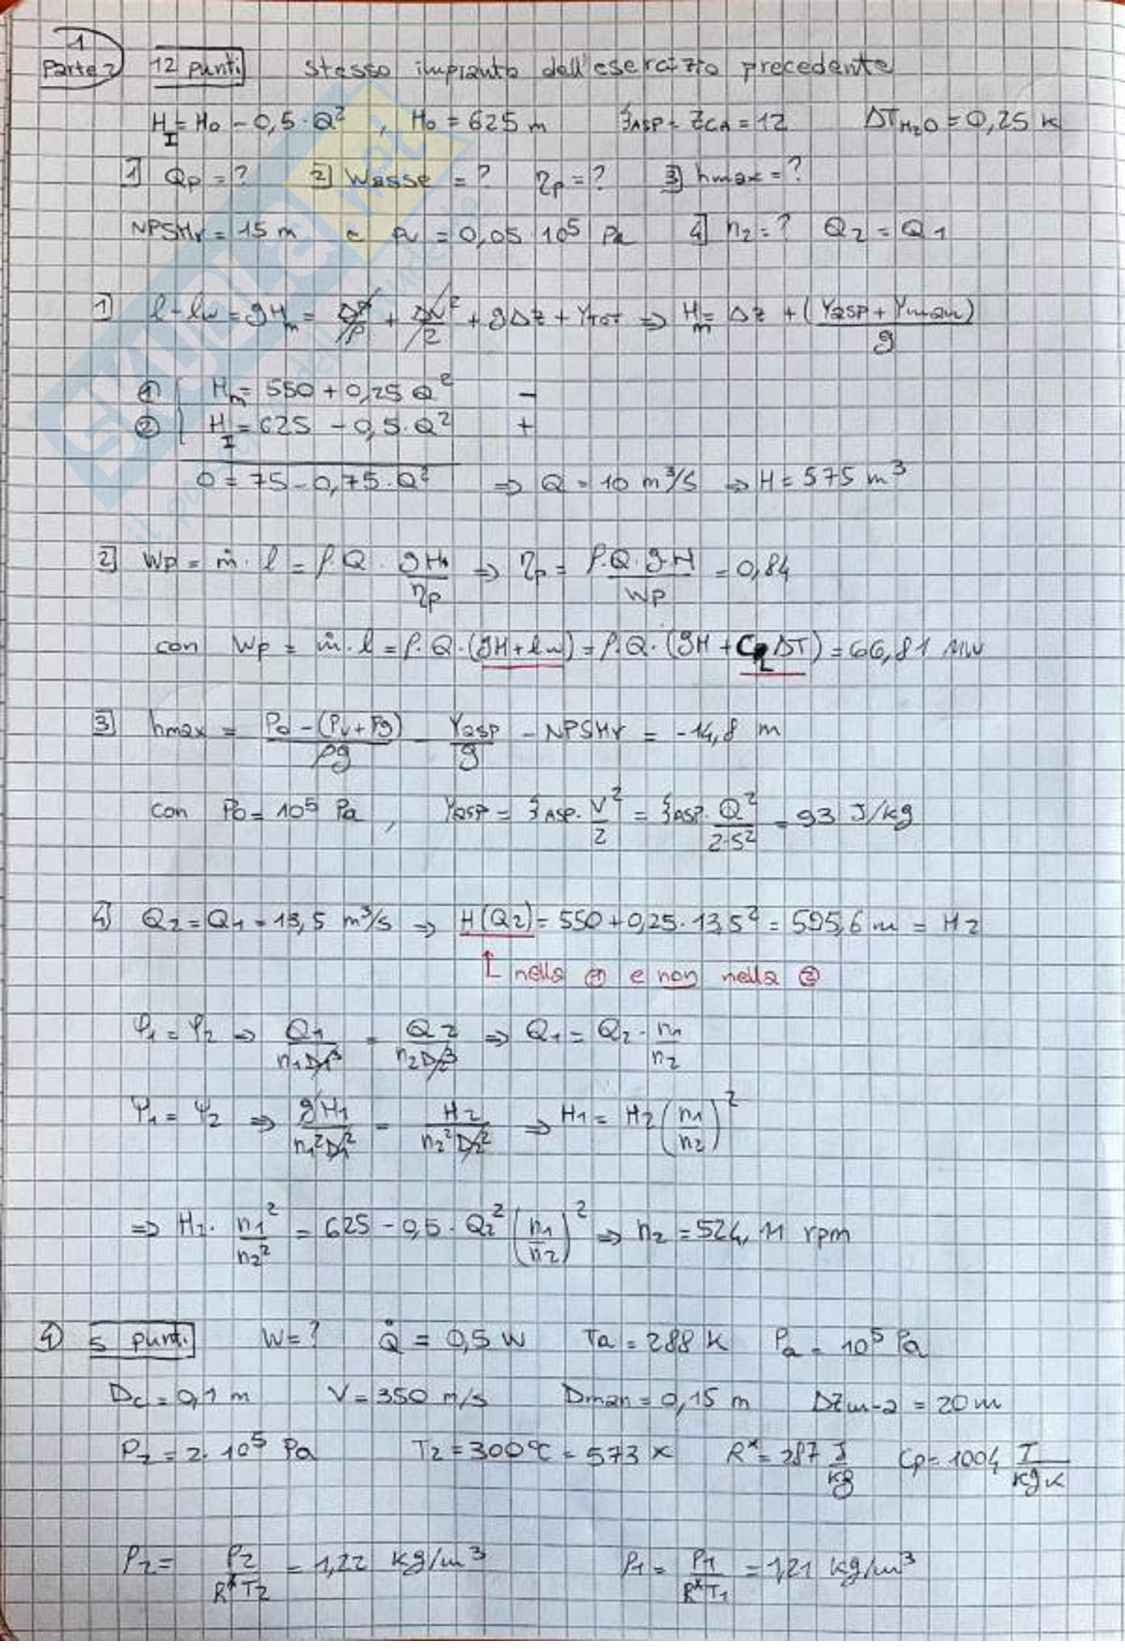 1
Parte 2 12 punti stesso impianto dell'esercizio precedente
H_I = H0 - 0,5·Q² , H0 = 625 m ξASP - ZCA = 12 ΔT_H2O = 0,25 K
1] Qp = ? 2] Wasse = ? ηp = ? 3] hmax = ?
NPSHr = 15 m e Pv = 0,05 10⁵ Pa 4] n2 = ? Q2 = Q1
1] l - lw = gHm = Δp/ρ + Δv²/2 + gΔz + Ytot ⇒ Hm = Δz + (Yasp + Yman)/g
① Hm = 550 + 0,25 Q² -
② H_I = 625 - 0,5·Q² +
0 = 75 - 0,75·Q² ⇒ Q = 10 m³/s ⇒ H = 575 m³
2] Wp = ṁ·l = ρ·Q·gHm/ηp ⇒ ηp = ρ·Q·g·H/Wp = 0,84
con Wp = ṁ·l = ρ·Q·(gH + lw) = ρ·Q·(gH + CL ΔT) = 66,81 MW
3] hmax = P0 - (Pv + Pg)/ρg - Yasp/g - NPSHr = -14,8 m
con P0 = 10⁵ Pa , Yasp = ξASP·V²/2 = ξASP·Q²/2·S² = 93 J/kg
4] Q2 = Q1 = 13,5 m³/s ⇒ H(Q2) = 550 + 0,25·13,5² = 595,6 m = H2
↑ nella ① e non nella ②
φ1 = φ2 ⇒ Q1/n1D1³ = Q2/n2D2³ ⇒ Q1 = Q2·n1/n2
ψ1 = ψ2 ⇒ gH1/n1²D1² = H2/n2²D2² ⇒ H1 = H2 (n1/n2)²
⇒ H2·n1²/n2² = 625 - 0,5·Q2² (n1/n2)² ⇒ n2 = 524,11 rpm
4) 5 punti W = ? Q̇ = 0,5 W Ta = 288 K Pa = 10⁵ Pa
Dc = 0,1 m V = 350 m/s Dman = 0,15 m Δzm-a = 20 m
P2 = 2·10⁵ Pa T2 = 300°C = 573 K R* = 287 J/kg Cp = 1004 J/kgK
ρ2 = P2/R*T2 = 1,22 kg/m³ ρ1 = P1/R*T1 = 1,21 kg/m³